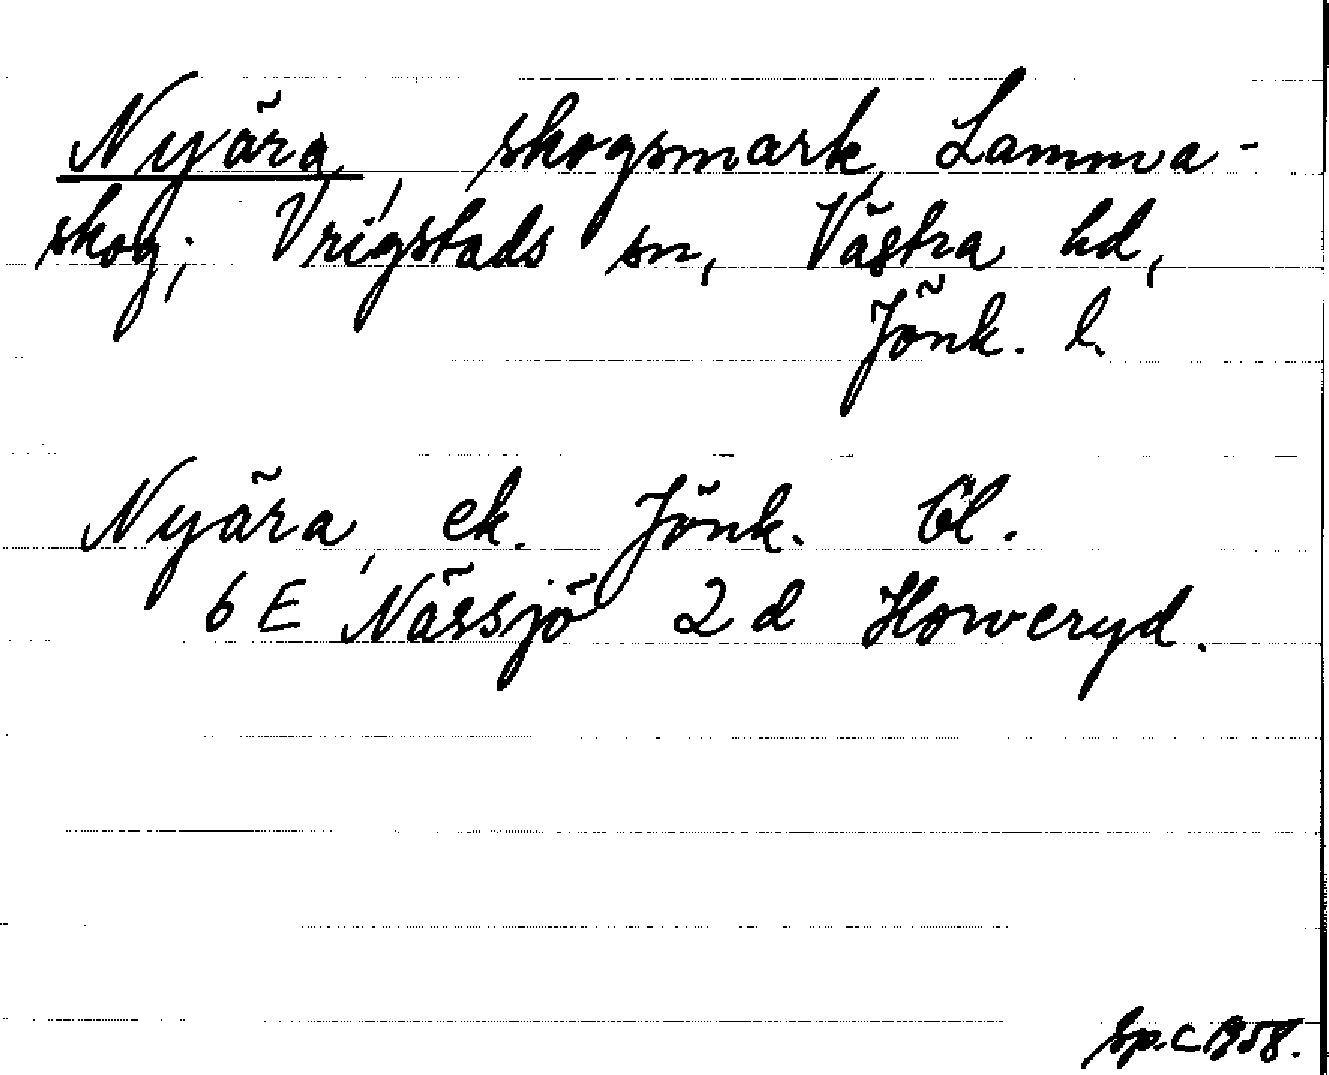 Nyära, skogsmark, Lamma-
skog; Vrigstads sn, Västra hd,
Jönk. l.
Nyära, ek. Jönk. bl.
6 E Nässjö 2 d Howeryd.
Sp. C 1958.